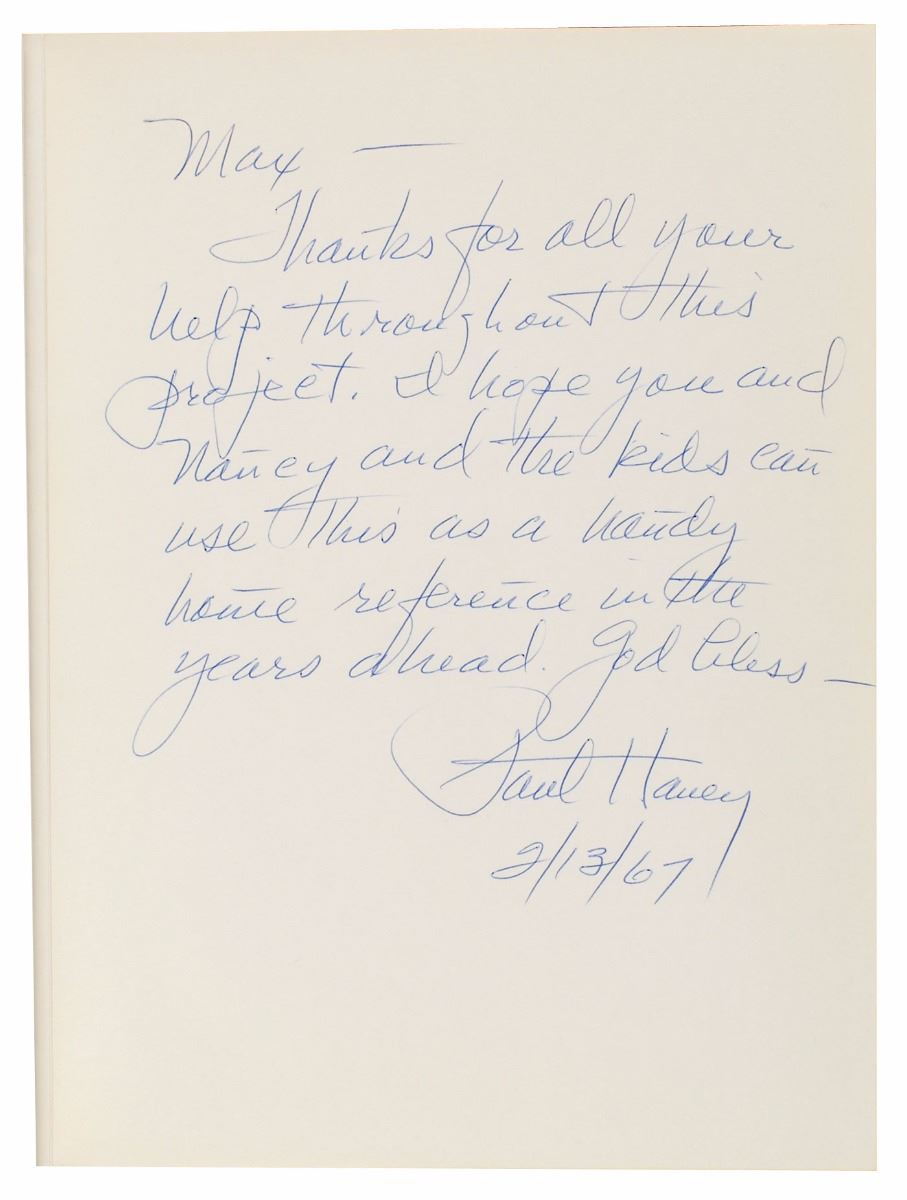 Max —
Thanks for all your
help throughout this
project. I hope you and
Nancy and the kids can
use this as a handy
home reference in the
years ahead. God bless —
Paul Haney
2/13/67